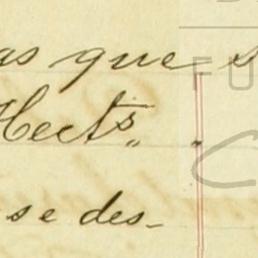 as que s
Hects. "
se des-